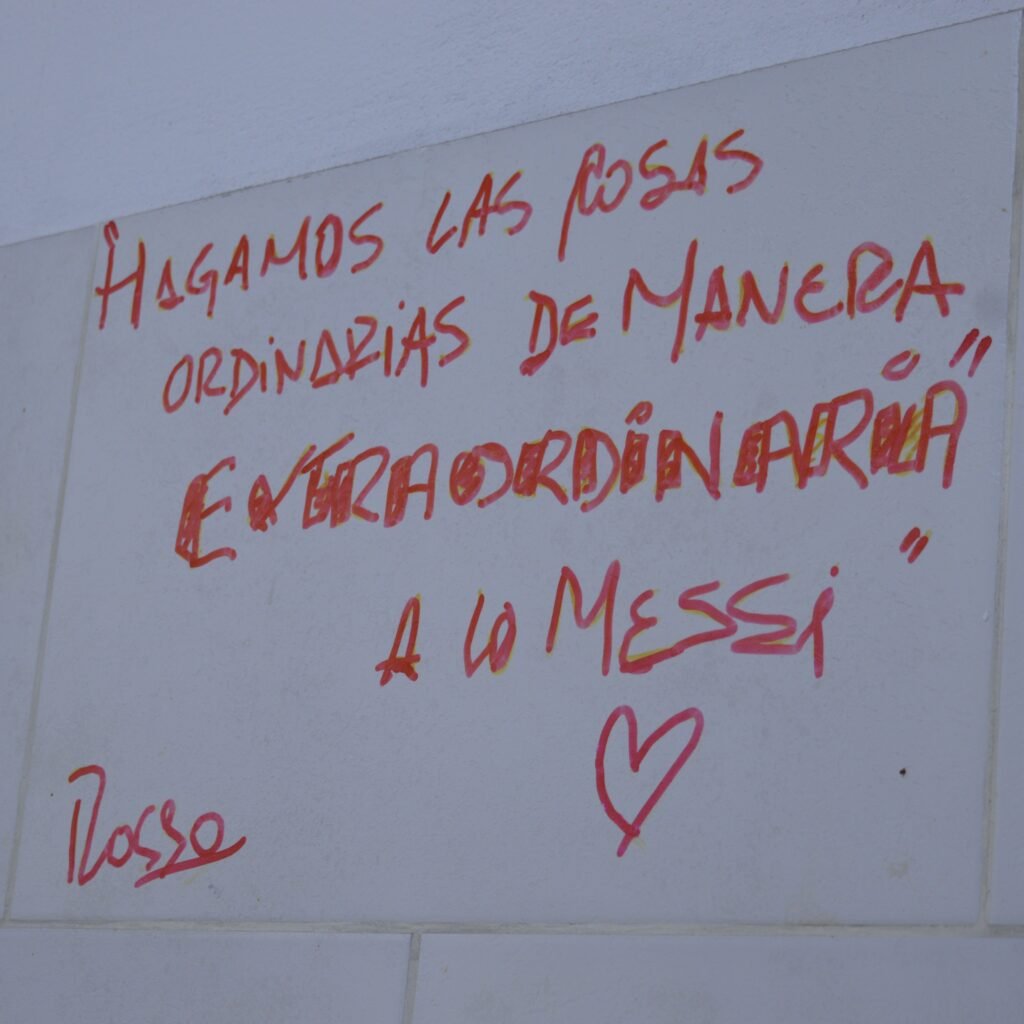 "HAGAMOS LAS COSAS
ORDINARIAS DE MANERA
EXTRAORDINARIA"
A LO MESSI"
Rosso